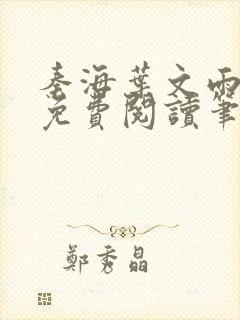 秦海葉文雨
免費閱讀筆
鄭秀晶